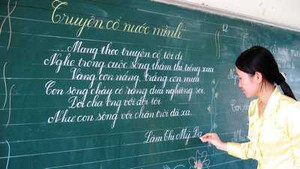 Truyện cổ nước mình
...Mang theo truyện cổ tôi đi
Nghe trong cuộc sống thầm thì tiếng xưa
Vàng cơn nắng, trắng cơn mưa
Con sông chảy có rặng dừa nghiêng soi.
đời cha ông với đời tôi
Như con sông với chân trời đã xa.
Lâm Thị Mỹ Dạ